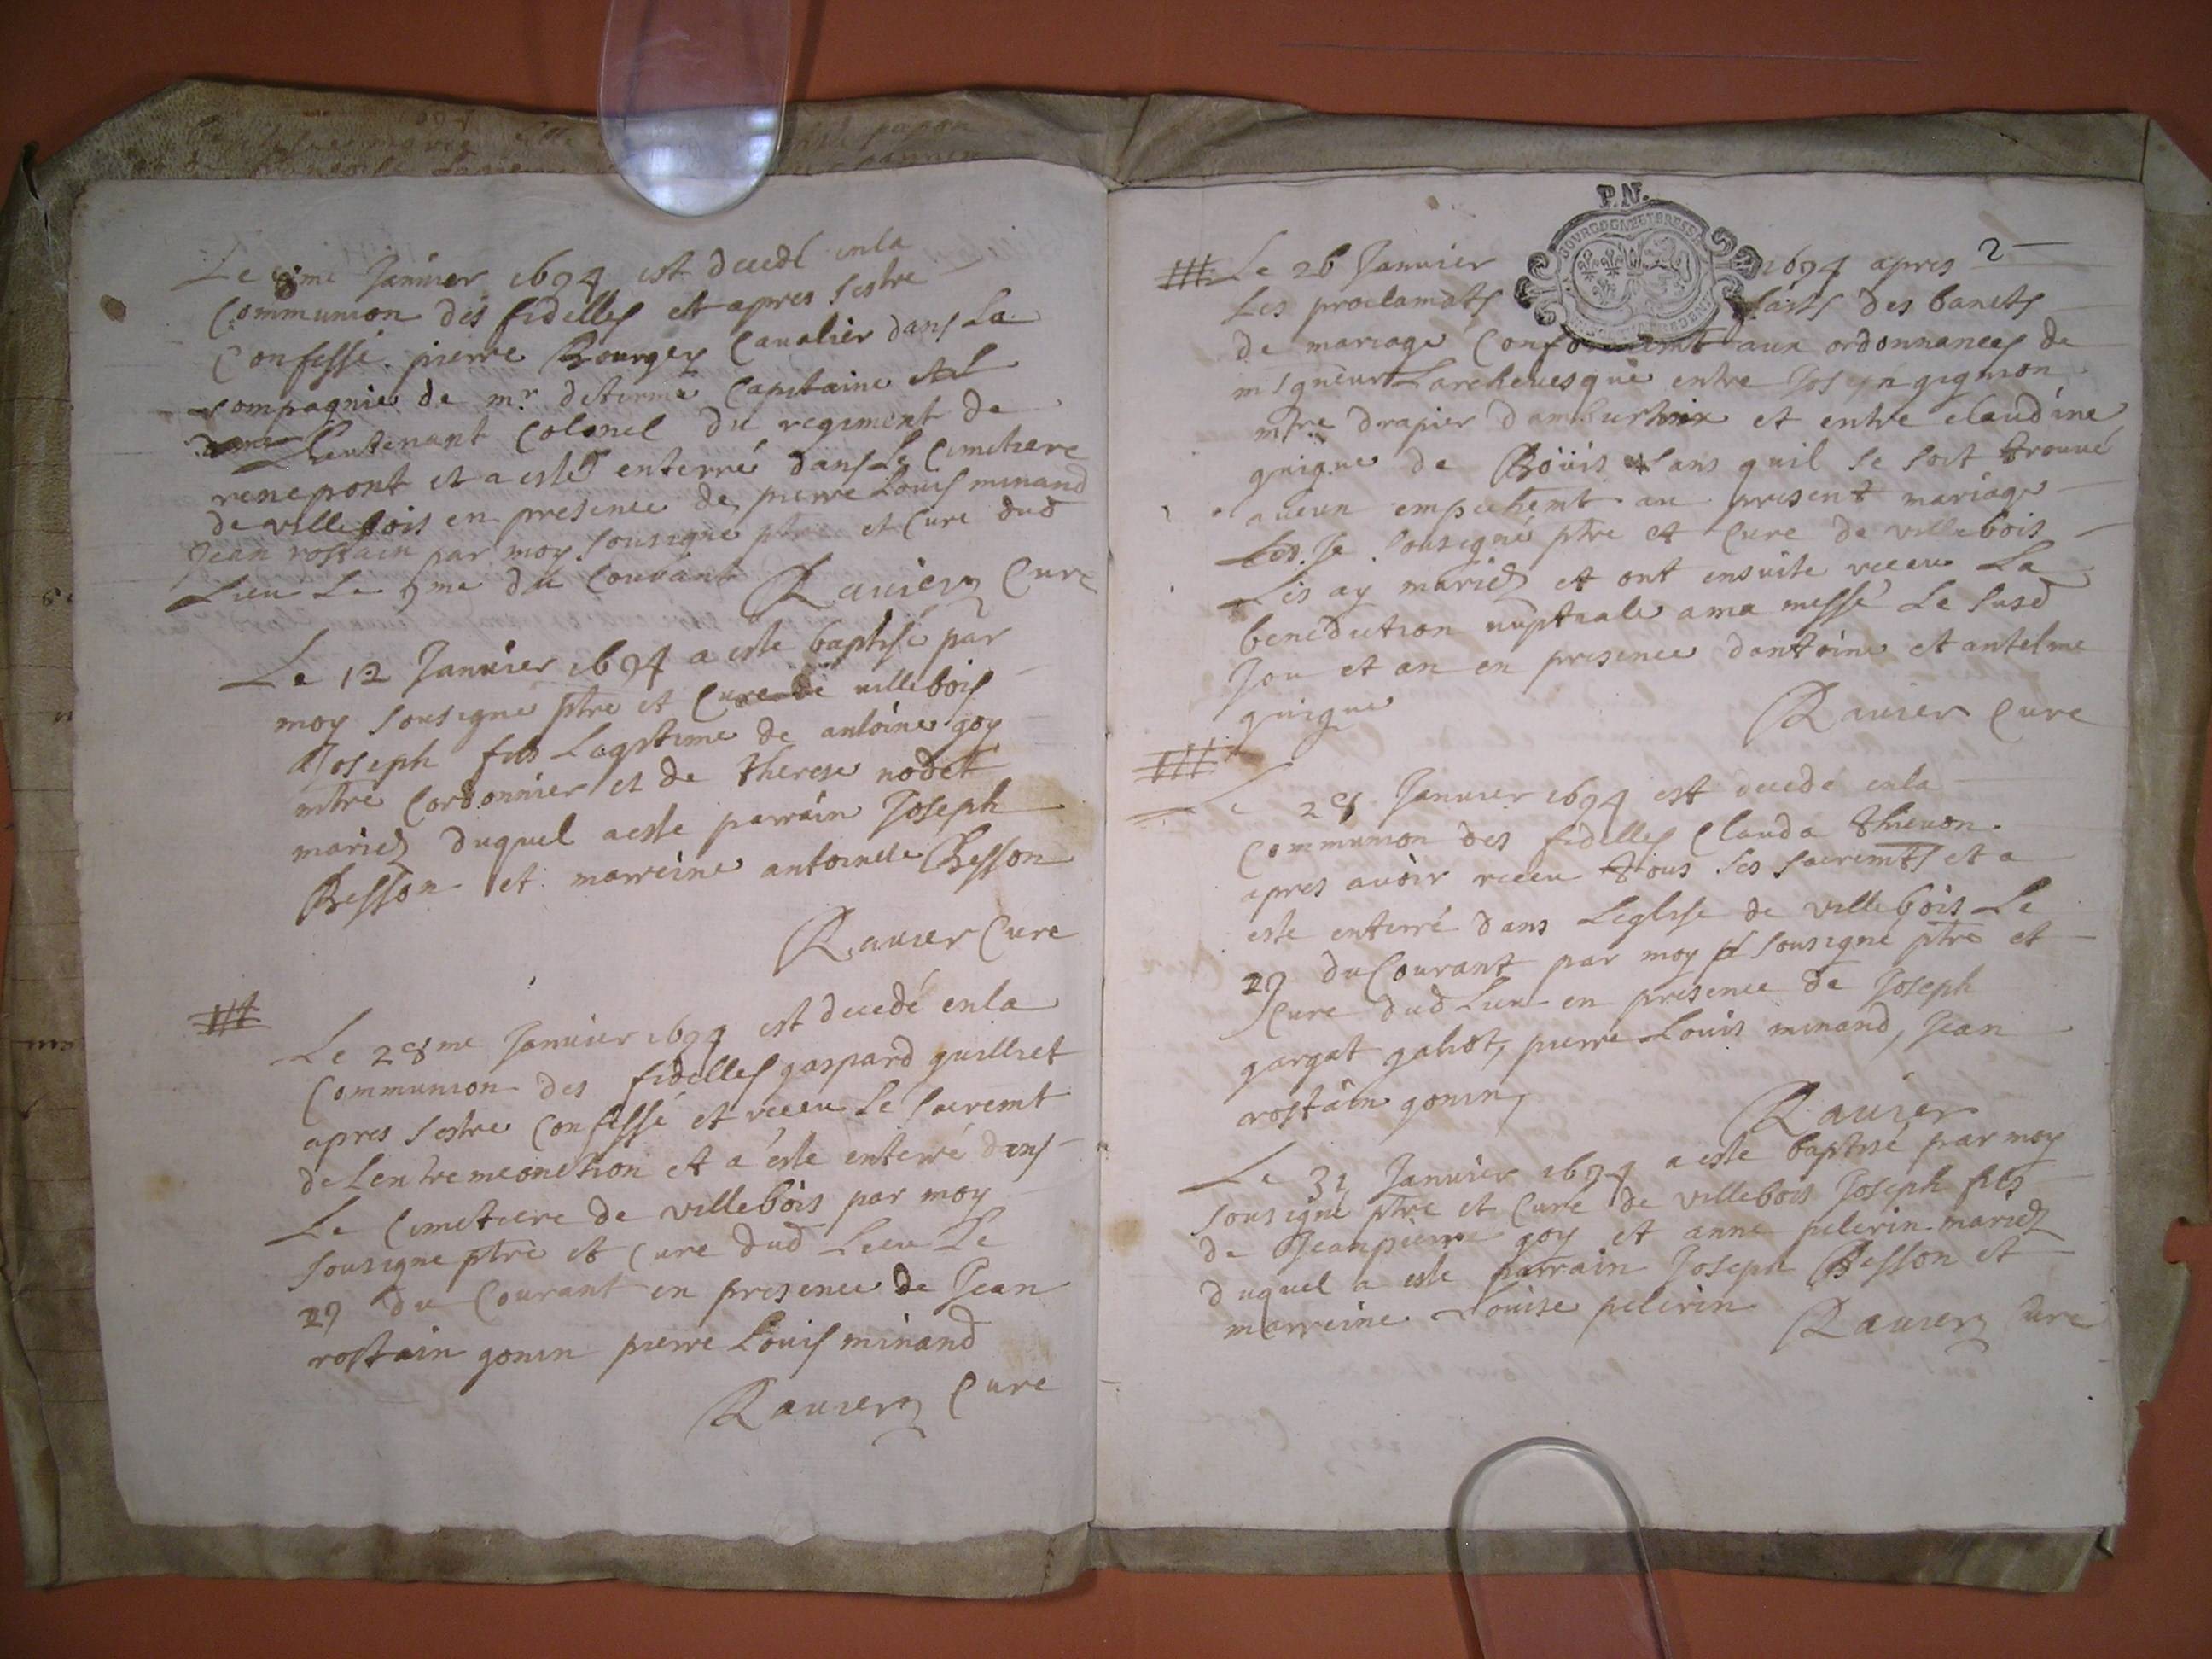 Le 8me Januier 1694 est decedé enla
Communion des fidelles et apres sestre
Confessé pierre Bourgey Caualier dans La
compagnie de mr Capitaine et
Lieutenant Colonel du regiment de
renepont et a esté enterré dans Le Cimetiere
de villebois en presence de pierre Louis minand
Jean rostain par moy sousigne ptre et Cure dud
Lieu Le 9me du Courant Rauier Cure
Le 12 Januier 1694 a este baptisé par
moy sousigne ptre et Cure de villebois
Joseph fils Lagitime de antoine goy
mtre Cordonnier et de therese nodet
mariez duquel aeste parrain Joseph
Besson et marreine antoinette Besson
Rauier Cure
Le 28me Januier 1694 est decedé enla
Communion des fidelles gaspard guilliet
apres sestre Confessé et receu Le sacremt
de Lentremeonction et a este enterré dans
Le Cimetiere de villebois par moy
sousigne ptre et Cure dud Lieu Le
29 du Courant en presence de Jean
rostain gonin pierre Louis minand
Rauier Cure
P.N.
2
Le 26 Januier 1694 apres
Les proclamats faits des bancts
de mariage Conformemt aux ordonnances de
msgneur Larcheuesque entre Joseph gignon
mtre drapier et entre claudine
guigue de Boüis sans quil se soit trouué
aucun empechemt au present mariage
Je sousigné ptre et Cure de villebois
Les ay mariez et ont ensuite receu La
benediction nuptiale a ma messe Le susd
Jou et an en presence dantoine et antelme
guigue
Rauier Cure
Le 28 Januier 1694 est decedé enla
Communion des fidelles Clauda theuon
apres auoir receu tous ses sacremts et a
este enterré dans Leglise de villebois Le
29 du Courant par moy sousigné ptre et
Cure dud Lieu en presence de Joseph
gargat galiot, pierre Louis minand, Jean
rostain gonin,
Rauier
Le 31 Januier 1694 a este baptisé par moy
sousigné ptre et Curé de villebois Joseph fils
de Jeanpierre goy et anne pelerin mariez
duquel a este parrain Joseph Besson et
marreine Louise pelerin Rauier Curé